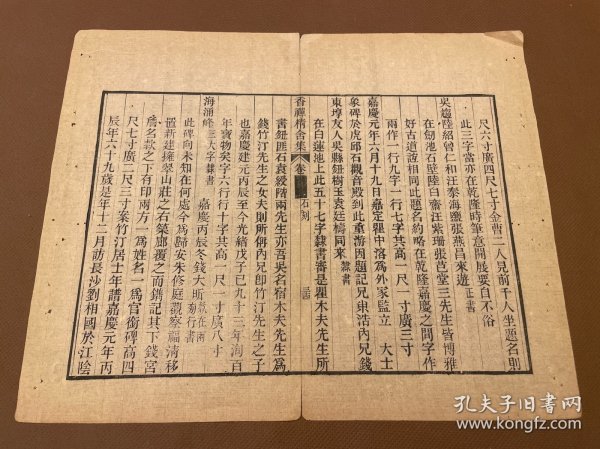 尺六寸廣四尺七寸金曹二人見前千人坐題名則
此三字當亦在乾隆時筆意開展要自不俗
吳騫陸紹曾仁和汪泰海鹽張燕昌來遊正書
在劍池石壁陸白齋汪紫珊張芑堂三先生皆博雅
好古道誼相同此題名約略在乾隆嘉慶之間字作
兩作一行九字一行七字其高一尺一寸廣三寸
嘉慶元年六月十九日嘉定瞿中溶為外家監立大士
象碑於虎邱石觀音殿到此重游因題記兄東浯內兄錢
東埻友人吳縣鈕樹玉袁廷檮同來隸書
在白蓮池上此五十七字隸書審是瞿木夫先生所
香禪精舍集 卷 石刻
書鈕匪石袁綬階兩先生亦吾吳名宿木夫先生為
錢竹汀先生之女夫則所偁內兄即竹汀先生之子
也嘉慶建元丙辰至今光緒戊子已九十三年海百
年寶物矣字六行行十字其高一尺一寸廣八寸
海涌峰三大字隸書 嘉慶丙辰冬錢大昕
此碑向未知在何處今為歸安朱修庭觀察福清移
置新建擁翠山莊之石築廊覆之而鐫記其下錢宮
詹名款之下有印兩方一為姓名一為官銜碑高四
尺七寸廣二尺三寸案竹汀居士年譜嘉慶元年丙
辰年六十九歲是年十二月訪長沙劉相國於江陰
孔夫子旧书网
www.kongfz.com